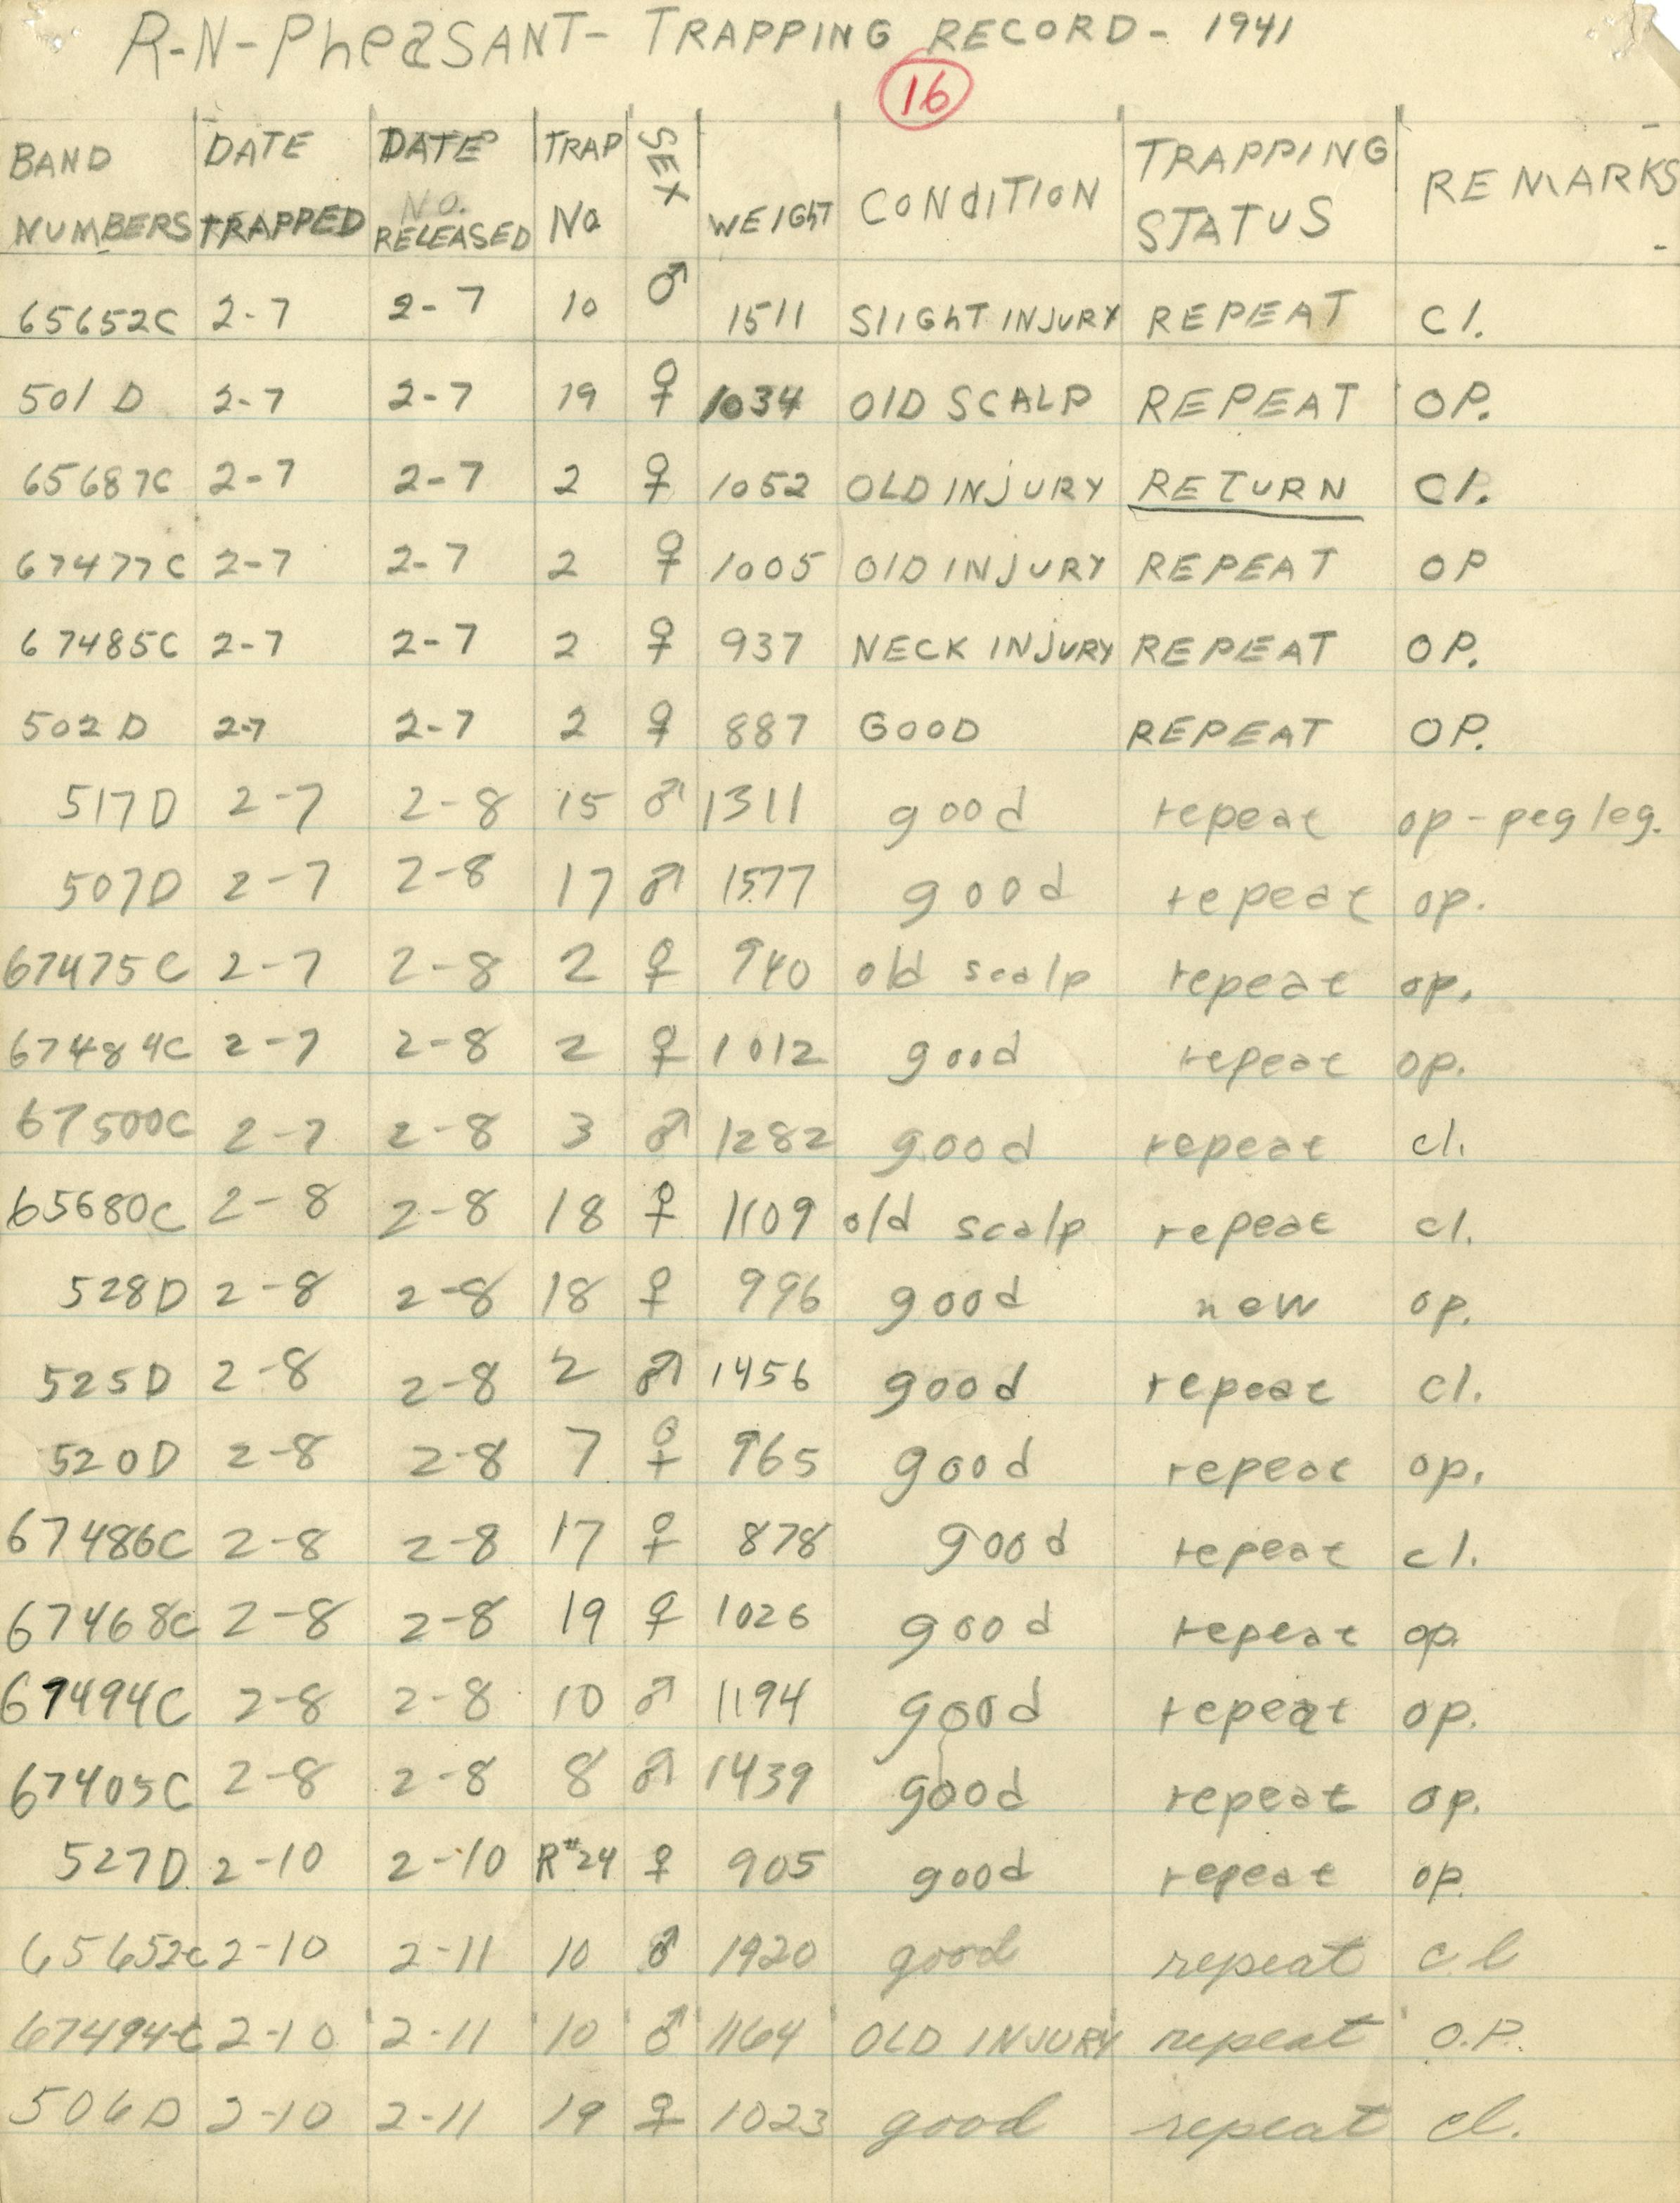 R-N-PheaSANT- TRAPPING RECORD- 1941
16
BAND NUMBERS DATE TRAPPED DATE NO. RELEASED TRAP No SEX WEIGhT CONdITION TRAPPING STATUS REMARKS
65652C 2-7 2-7 10 ♂ 1511 SlIGhT INJURY REPEAT Cl.
501 D 2-7 2-7 19 ♀ 1034 OlD SCALP REPEAT OP.
65687C 2-7 2-7 2 ♀ 1052 OLD INJURY RETURN Cl.
67477C 2-7 2-7 2 ♀ 1005 OlD INJURY REPEAT OP
67485C 2-7 2-7 2 ♀ 937 NECK INJURY REPEAT OP.
502 D 2-7 2-7 2 ♀ 887 GOOD REPEAT OP.
517D 2-7 2-8 15 ♂ 1311 good repeat op-peg leg.
507D 2-7 2-8 17 ♂ 1577 good repeat op.
67475C 2-7 2-8 2 ♀ 940 old scalp repeat op.
67484C 2-7 2-8 2 ♀ 1012 good repeat op.
67500C 2-7 2-8 3 ♂ 1282 good repeat cl.
65680C 2-8 2-8 18 ♀ 1109 old scalp repeat cl.
528D 2-8 2-8 18 ♀ 996 good new op.
525D 2-8 2-8 2 ♂ 1456 good repeat cl.
520D 2-8 2-8 7 ♀ 965 good repeat op.
67486C 2-8 2-8 17 ♀ 878 good repeat cl.
67468C 2-8 2-8 19 ♀ 1026 good repeat op.
67494C 2-8 2-8 10 ♂ 1194 good repeat op.
67405C 2-8 2-8 8 ♂ 1439 good repeat op.
527D. 2-10 2-10 R#24 ♀ 905 good repeat op.
65652c 2-10 2-11 10 ♂ 1920 good repeat cl
67494-C 2-10 2-11 10 ♂ 1164 OLD INJURY repeat O.P.
506D 2-10 2-11 19 ♀ 1023 good repeat cl.